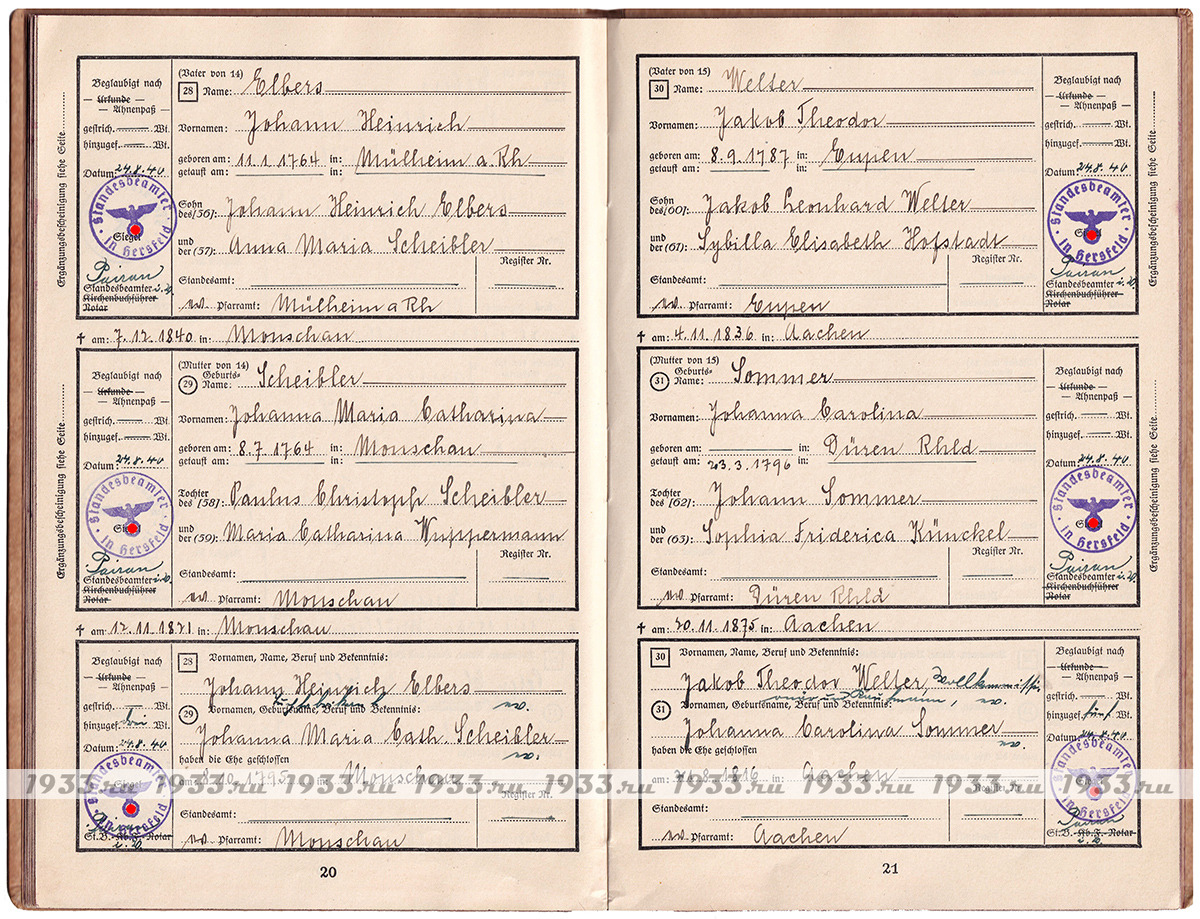 Ergänzungsbescheinigung siehe Seite
Beglaubigt nach
— Urkunde —
— Ahnenpaß —
gestrich. — Wt.
hinzugef. — Wt.
Datum: 24.8.40
Standesbeamter in Hersfeld
Siegel
Standesbeamter i.V.
Kirchenbuchführer
Notar
(Vater von 14)
28 Name: Elbers
Vornamen: Johann Heinrich
geboren am: 11.1.1764 in: Mülheim a. Rh
getauft am: in:
Sohn des (56): Johann Heinrich Elbers
und der (57): Anna Maria Scheibler
Register Nr.
Standesamt:
ev. Pfarramt: Mülheim a Rh
† am: 7.12.1840 in: Monschau
Ergänzungsbescheinigung siehe Seite
Beglaubigt nach
— Urkunde —
— Ahnenpaß —
gestrich. — Wt.
hinzugef. — Wt.
Datum: 24.8.40
Standesbeamter in Hersfeld
Siegel
Standesbeamter i.V.
Kirchenbuchführer
Notar
(Mutter von 14)
29 Geburts-Name: Scheibler
Vornamen: Johanna Maria Catharina
geboren am: 8.7.1764 in: Monschau
getauft am: in:
Tochter des (58): Paulus Christoph Scheibler
und der (59): Maria Catharina Wuppermann
Register Nr.
Standesamt:
ev. Pfarramt: Monschau
† am: 12.11.1821 in: Monschau
Beglaubigt nach
— Urkunde —
— Ahnenpaß —
gestrich. — Wt.
hinzugef. drei Wt.
Datum: 24.8.40
Standesbeamter in Hersfeld
Siegel
St.B.-Kb.F.-Notar
i.V.
28 Vornamen, Name, Beruf und Bekenntnis:
Johann Heinrich Elbers
Tuchfabrikant ev.
29 Vornamen, Geburtsname, Beruf und Bekenntnis:
Johanna Maria Cath. Scheibler
ev.
haben die Ehe geschlossen
am: 8.10.1795 in: Monschau
Register Nr.
Standesamt:
ev. Pfarramt: Monschau
20
(Vater von 15)
30 Name: Welter
Vornamen: Jakob Theodor
geboren am: 8.9.1787 in: Eupen
getauft am: in:
Sohn des (60): Jakob Leonhard Welter
und der (61): Sybilla Elisabeth Hofstadt
Register Nr.
Standesamt:
ev. Pfarramt: Eupen
Beglaubigt nach
— Urkunde —
— Ahnenpaß —
gestrich. — Wt.
hinzugef. — Wt.
Datum: 24.8.40
Standesbeamter in Hersfeld
Siegel
Standesbeamter i.V.
Kirchenbuchführer
Notar
Ergänzungsbescheinigung siehe Seite
† am: 4.11.1836 in: Aachen
(Mutter von 15)
31 Geburts-Name: Sommer
Vornamen: Johanna Carolina
geboren am: in: Düren Rhld
getauft am: 23.3.1796 in:
Tochter des (62): Johann Sommer
und der (63): Sophia Friderica Künckel
Register Nr.
Standesamt:
ev. Pfarramt: Düren Rhld
Beglaubigt nach
— Urkunde —
— Ahnenpaß —
gestrich. — Wt.
hinzugef. — Wt.
Datum: 24.8.40
Standesbeamter in Hersfeld
Siegel
Standesbeamter i.V.
Kirchenbuchführer
Notar
Ergänzungsbescheinigung siehe Seite
† am: 20.11.1875 in: Aachen
30 Vornamen, Name, Beruf und Bekenntnis:
Jakob Theodor Welter,
ev.
31 Vornamen, Geburtsname, Beruf und Bekenntnis:
Johanna Carolina Sommer
ev.
haben die Ehe geschlossen
am: 1816 in: Aachen
Register Nr.
Standesamt:
ev. Pfarramt: Aachen
Beglaubigt nach
— Urkunde —
— Ahnenpaß —
gestrich. — Wt.
hinzugef. fünf Wt.
Datum: 24.8.40
Standesbeamter in Hersfeld
St.B.-Kb.F.-Notar
i.V.
21
1933.ru 1933.ru 1933.ru 1933.ru 1933.ru 1933.ru 1933.ru 1933.ru 1933.ru